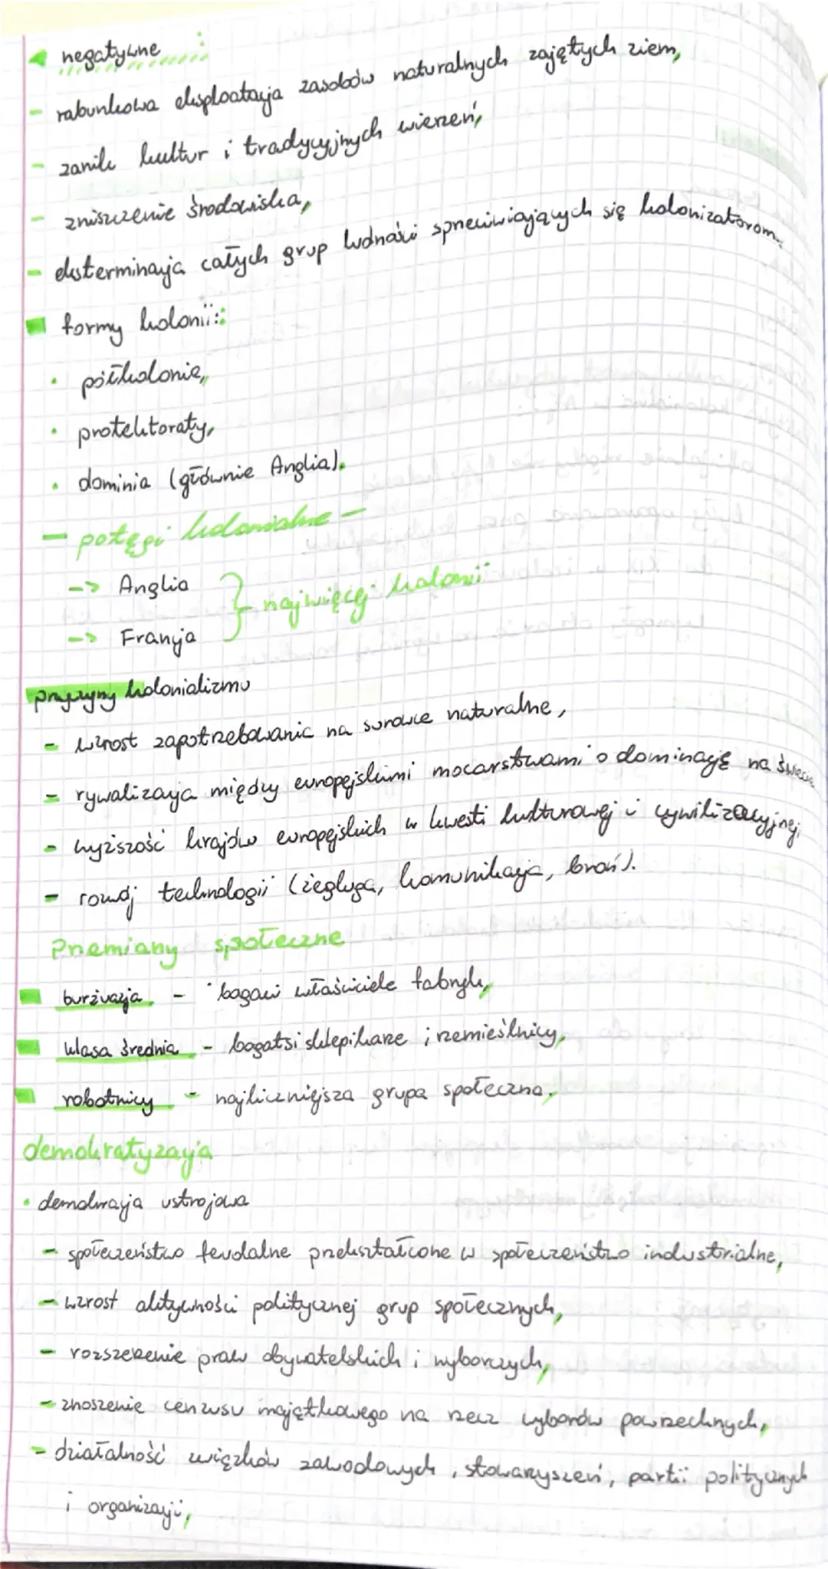 negatywne :
- rabunkowa eksploatacja zasobów naturalnych zajętych ziem,
- zanik kultur i tradycyjnych wierzeń,
- zniszczenie środowiska,
- eksterminacja całych grup ludności sprzeciwiających się kolonizatorom.
formy kolonii:
• półkolonie,
• protektoraty,
• dominia (głównie Anglia).
- potęgi kolonialne -
-> Anglia } najwięcej kolonii
-> Francja
przyczyny kolonializmu
- wzrost zapotrzebowania na surowce naturalne,
- rywalizacja między europejskimi mocarstwami o dominację na świecie
- wyższość krajów europejskich w kwesti kulturowej i cywilizacyjnej,
- rozwój technologii (żegluga, komunikacja, broń).
Przemiany społeczne
burżuazja - bogaci właściciele fabryk,
klasa średnia - bogatsi sklepikarze i rzemieślnicy,
robotnicy - najliczniejsza grupa społeczna,
demokratyzacja
• demokracja ustrojowa
- społeczeństwo feudalne przekształcone w społeczeństwo industrialne,
- wzrost aktywności politycznej grup społecznych,
- rozszerzenie praw obywatelskich i wyborczych,
- znoszenie cenzusu majątkowego na rzecz wyborów powszechnych,
- działalność związków zawodowych, stowarzyszeń, partii politycznych
i organizacji,